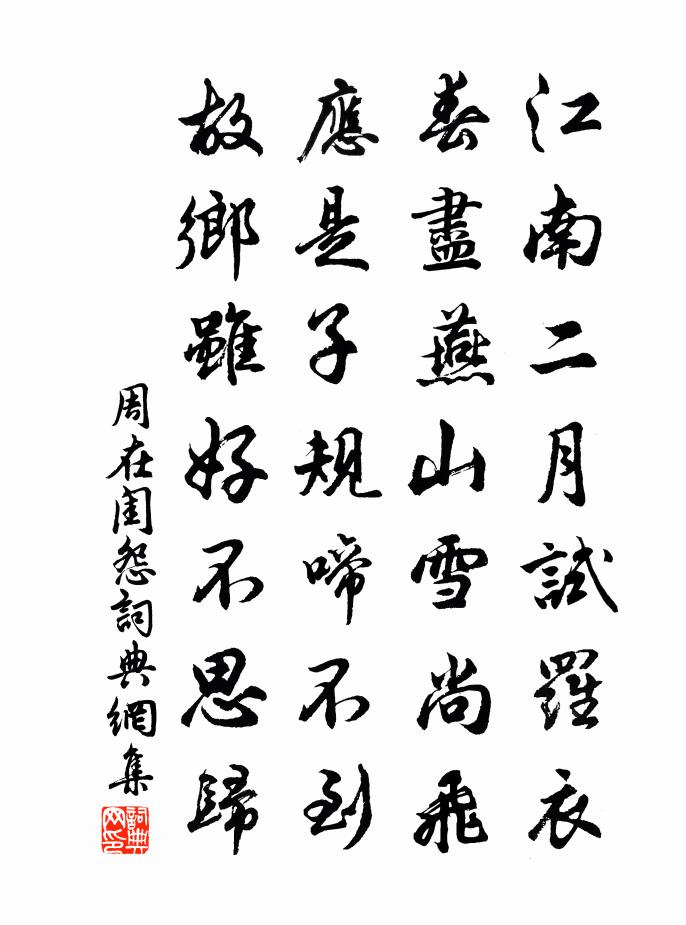 江南二月試羅衣
春盡燕山雪尚飛
應是子規啼不到
故鄉雖好不思歸
周在閨怨詞典網集
詞典網印